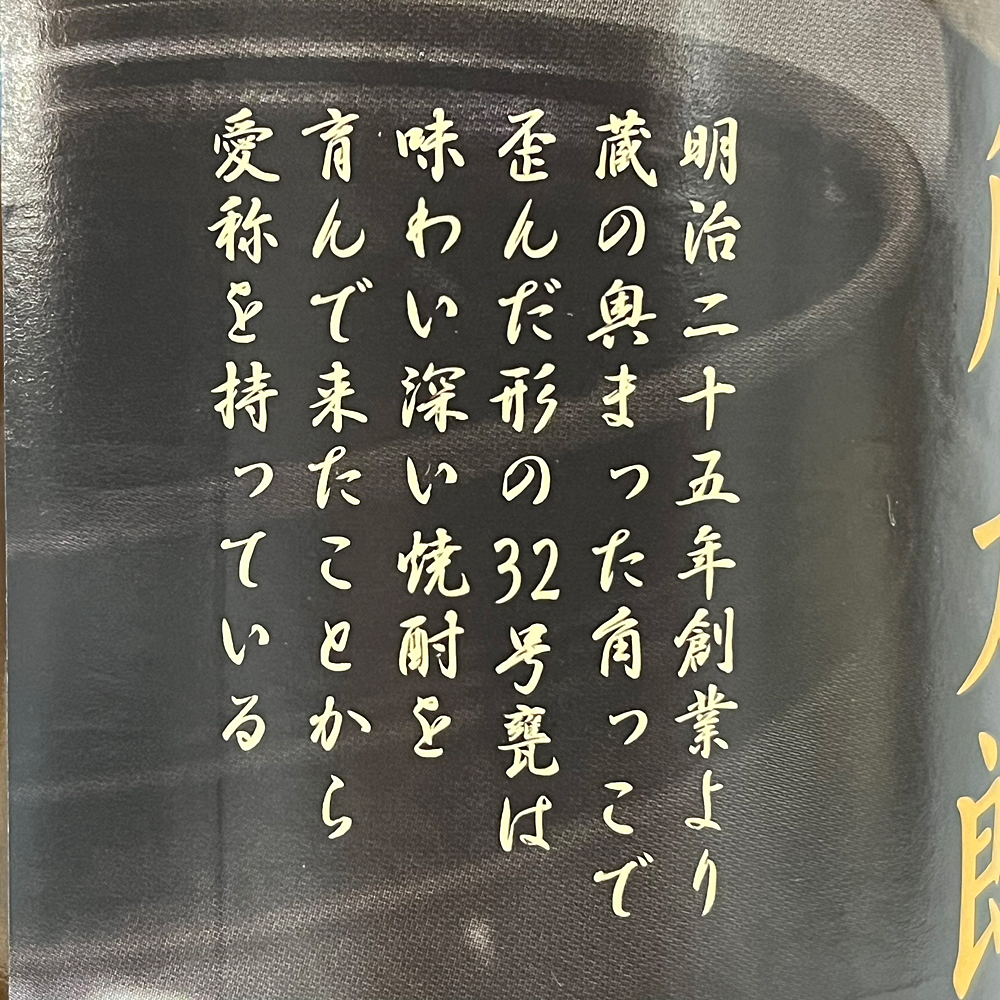 明治二十五年創業より
蔵の奥まった角っこで
歪んだ形の32号甕は
味わい深い焼酎を
育んで来たことから
愛称を持っている